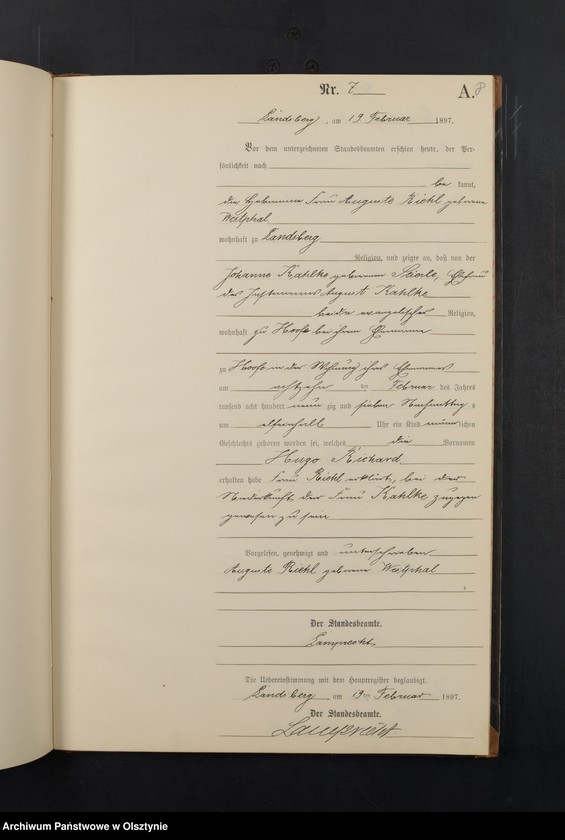 Nr. 7
A. 8
Landsberg, am 19 Februar 1897.
Vor dem unterzeichneten Standesbeamten erschien heute, der Per-
sönlichkeit nach
be kannt,
die Hebamme Frau Auguste Riehl geborene
Westphal
wohnhaft zu Landsberg
Religion, und zeigte an, daß von der
Johanne Kahlke geborenen Ehefrau
des Instmanns August Kahlke
beide evangelischer Religion,
wohnhaft zu Hoofe bei ihrem Ehemanne
zu Hoofe in der Wohnung ihres Ehemannes
am achtzehn ten Februar des Jahres
tausend acht hundert neun zig und sieben Nachmittag s
um elfeinhalb Uhr ein Kind männ lichen
Geschlechts geboren worden sei, welches die Vornamen
Hugo Richard
erhalten habe Frau Riehl erklärt, bei der
Niederkunft der Frau Kahlke zugegen
gewesen zu sein
Vorgelesen, genehmigt und unterschrieben
Auguste Riehl geborene Westphal
Der Standesbeamte.
Lamprecht
Die Uebereinstimmung mit dem Hauptregister beglaubigt.
Landsberg am 19ten Februar 1897.
Der Standesbeamte.
Lamprecht
Archiwum Państwowe w Olsztynie